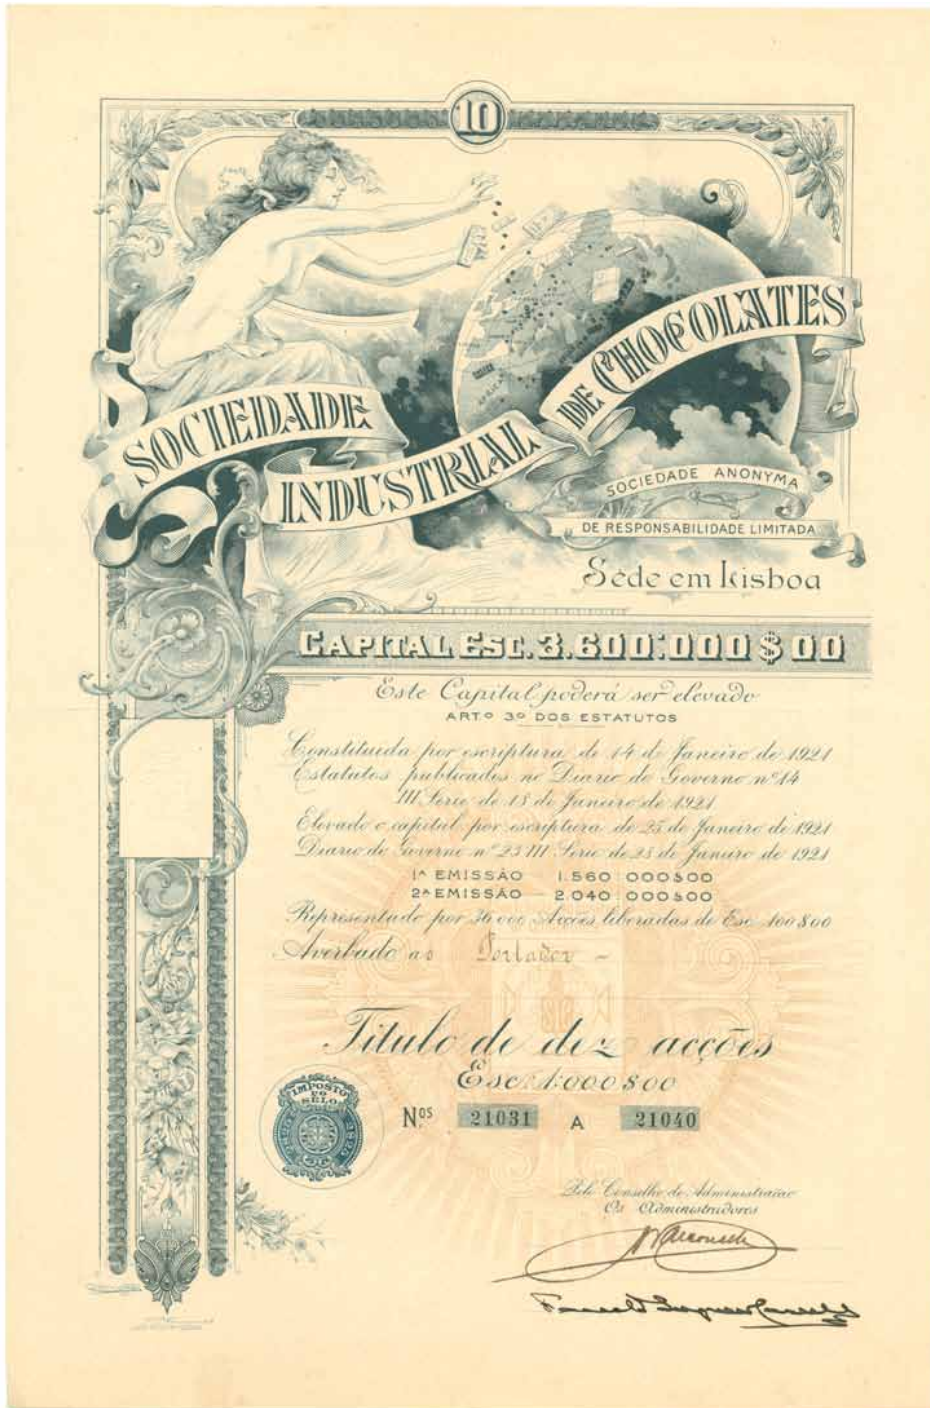 10
SOCIEDADE
INDUSTRIAL
DE CHOCOLATES
SOCIEDADE ANONYMA
DE RESPONSABILIDADE LIMITADA
Séde em Lisboa
CAPITAL ESC. 3.600:000 $ 00
Este Capital poderá ser elevado
ART.º 3º DOS ESTATUTOS
Constituida por escriptura de 14 de Janeiro de 1921
Estatutos publicados no Diario do Governo nº 14
III Serie de 18 de Janeiro de 1921
Elevado o capital por escriptura de 25 de Janeiro de 1921
Diario do Governo nº 23 III Serie de 28 de Janeiro de 1921
1ª EMISSÃO 1.560:000$00
2ª EMISSÃO 2.040:000$00
Representado por 36000 Acções liberadas de Esc. 100$00
Averbado ao Portador -
Titulo de dez acções
Esc. 1:000$00
IMPOSTO
DO
SELO
Nos. 21031 A 21040
Pelo Conselho de Administração
Os Administradores